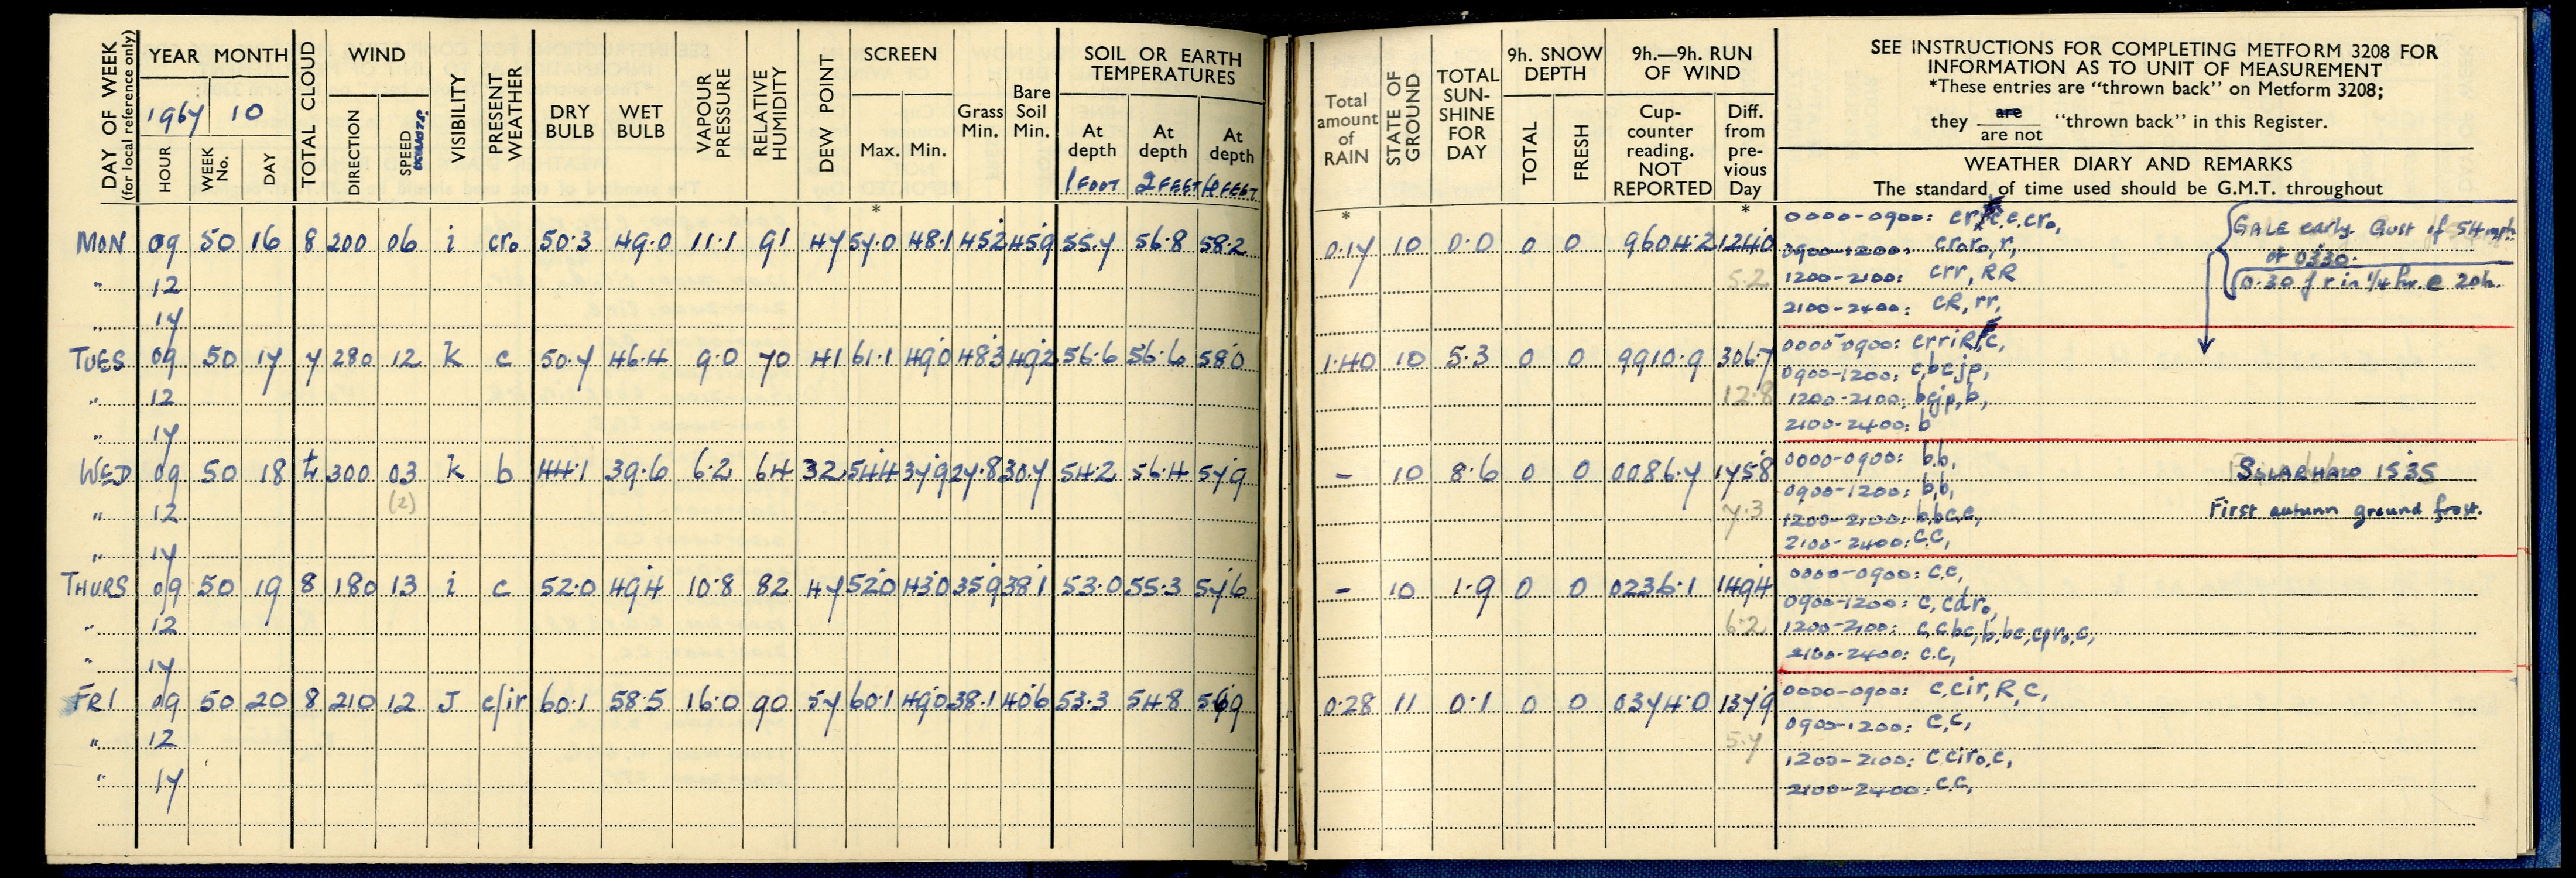 DAY OF WEEK
(for local reference only)
YEAR MONTH
1967 10
HOUR
WEEK No.
DAY
TOTAL CLOUD
WIND
DIRECTION
SPEED
VISIBILITY
PRESENT WEATHER
DRY BULB
WET BULB
VAPOUR PRESSURE
RELATIVE HUMIDITY
DEW POINT
SCREEN
Max. Min.
Grass Min.
Bare Soil Min.
SOIL OR EARTH TEMPERATURES
At depth 1 FOOT
At depth 2 FEET
At depth 4 FEET
Total amount of RAIN
STATE OF GROUND
TOTAL SUN-SHINE FOR DAY
9h. SNOW DEPTH
TOTAL
FRESH
9h.—9h. RUN OF WIND
Cup-counter reading. NOT REPORTED
Diff. from pre-vious Day
SEE INSTRUCTIONS FOR COMPLETING METFORM 3208 FOR
INFORMATION AS TO UNIT OF MEASUREMENT
*These entries are "thrown back" on Metform 3208;
they are / are not "thrown back" in this Register.
WEATHER DIARY AND REMARKS
The standard of time used should be G.M.T. throughout
* * *
MON 09 50 16 8 200 06 i cr₀ 50.3 49.0 11.1 91 47 57.0 48.1 45.2 45.9 55.7 56.8 58.2 0.17 10 0.0 0 0 9604.2 124.0
" 12 5.2
" 17
0000-0900: e, cr₀,
0900-1200: cr₀r₀, r,
1200-2100: crr, RR
2100-2400: cR, rr,
GALE early Gust of 54 mph
at 0330.
0.30 of r in ¼ hr. @ 20h.
TUES 09 50 17 7 280 12 k c 50.7 46.4 9.0 70 41 61.1 49.0 48.3 49.2 56.6 56.6 58.0 1.40 10 5.3 0 0 9910.9 306.7
" 12 12.8
" 17
0000-0900: crriR, c,
0900-1200: c, bcjp,
1200-2100: bcjp, b,
2100-2400: b
WED 09 50 18 300 03 k b 44.1 39.6 6.2 64 32 54.4 37.9 27.8 30.7 54.2 56.4 57.9 - 10 8.6 0 0 0086.7 175.8
(2)
" 12 7.3
" 17
0000-0900: b.b,
0900-1200: b,b,
1200-2100: b,bc,c,
2100-2400: c.c,
SOLAR HALO 1535
First autumn ground frost.
THURS 09 50 19 8 180 13 i c 52.0 49.4 10.8 82 47 52.0 43.0 35.9 38.1 53.0 55.3 57.6 - 10 1.9 0 0 0236.1 149.4
" 12 6.2
" 17
0000-0900: c.c,
0900-1200: c, cdr₀,
1200-2100: c, c bc, b, bc, cpr₀, c,
2100-2400: c.c,
FRI 09 50 20 8 210 12 J c/ir 60.1 58.5 16.0 90 57 60.1 49.0 38.1 40.6 53.3 54.8 56.9 0.28 11 0.1 0 0 0374.0 137.9
" 12 5.7
" 17
0000-0900: c, cir, R, c,
0900-1200: c, c,
1200-2100: c cir₀, c,
2100-2400: c.c,